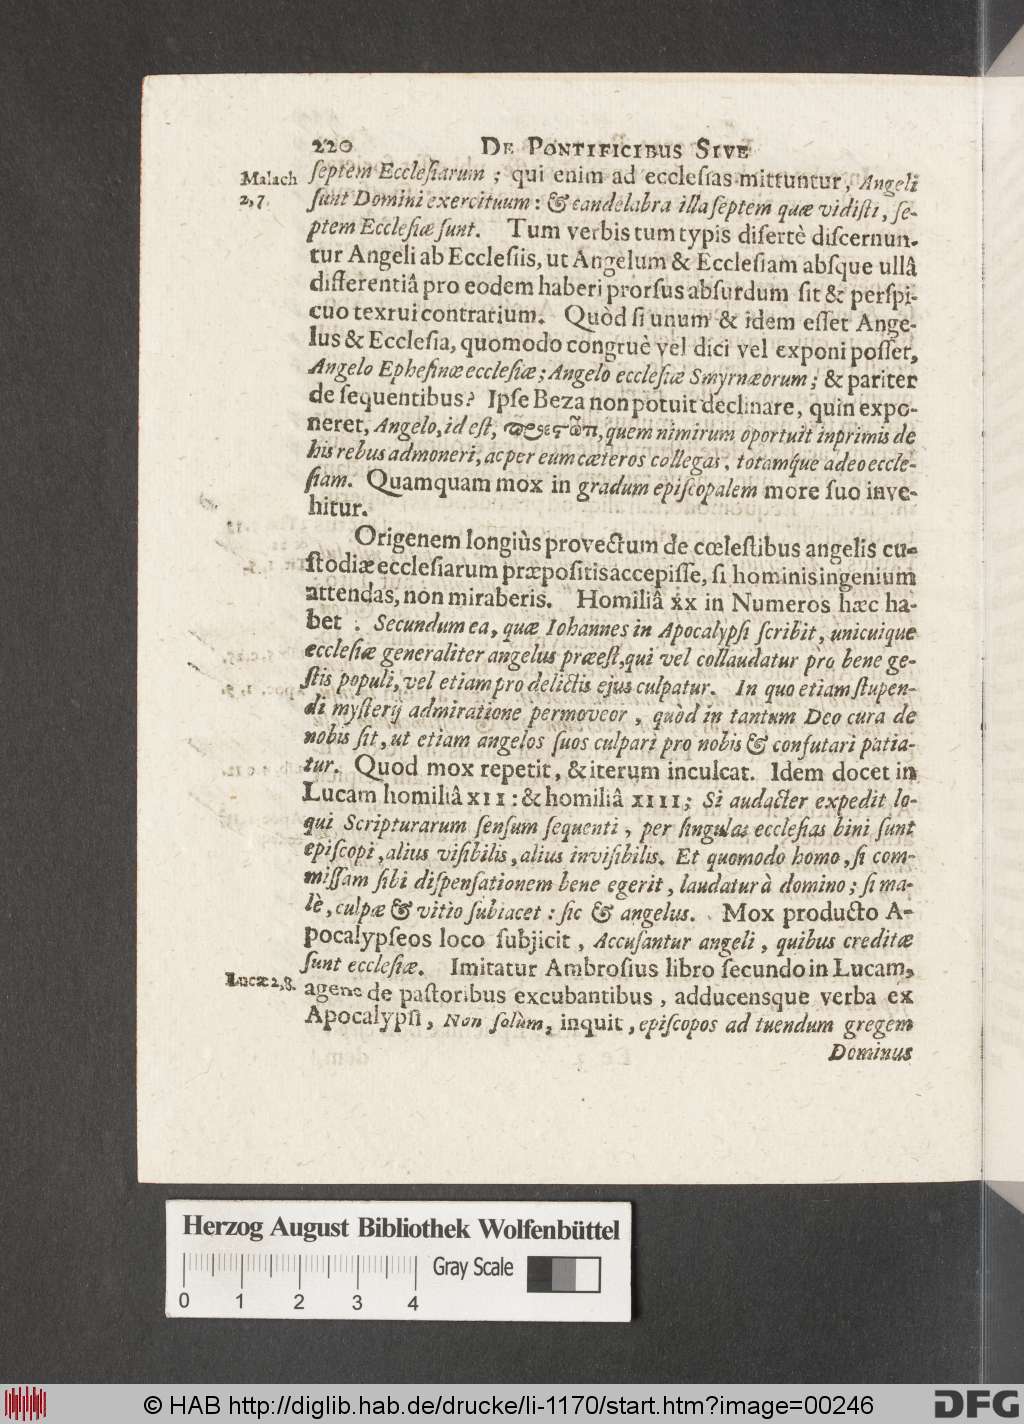 220 DE PONTIFICIBUS SIVE
Malach
2, 7.
ſeptem Eccleſiarum; qui enim ad eccleſias mittuntur, Angeli
ſunt Domini exercituum: & candelabra illa ſeptem quæ vidiſti, ſe-
ptem Eccleſiæ ſunt. Tum verbis tum typis diſertè diſcernun-
tur Angeli ab Eccleſiis, ut Angelum & Eccleſiam abſque ullâ
differentiâ pro eodem haberi prorſus abſurdum ſit & perſpi-
cuo textui contrarium. Quòd ſi unum & idem eſſet Ange-
lus & Eccleſia, quomodo congruè vel dici vel exponi poſſet,
Angelo Epheſinæ eccleſiæ; Angelo eccleſiæ Smyrnæorum; & pariter
de ſequentibus? Ipſe Beza non potuit declinare, quin expo-
neret, Angelo, id eſt, quem nimirum oportuit inprimis de
his rebus admoneri, ac per eum cæteros collegas, totamq́ue adeo eccle-
ſiam. Quamquam mox in gradum epiſcopalem more ſuo inve-
hitur.
Origenem longiùs provectum de cœleſtibus angelis cu-
ſtodiæ eccleſiarum præpoſitis accepiſſe, ſi hominis ingenium
attendas, non miraberis. Homiliâ xx in Numeros hæc ha-
bet : Secundum ea, quæ Iohannes in Apocalypſi ſcribit, unicuique
eccleſiæ generaliter angelus præeſt, qui vel collaudatur pro bene ge-
ſtis populi, vel etiam pro delictis ejus culpatur. In quo etiam ſtupen-
di myſterij admiratione permoveor, quòd in tantum Deo cura de
nobis ſit, ut etiam angelos ſuos culpari pro nobis & confutari patia-
tur. Quod mox repetit, & iterum inculcat. Idem docet in
Lucam homiliâ XII: & homiliâ XIIII; Si audacter expedit lo-
qui Scripturarum ſenſum ſequenti, per ſingulas eccleſias bini ſunt
epiſcopi, alius viſibilis, alius inviſibilis. Et quomodo homo, ſi com-
miſſam ſibi diſpenſationem bene egerit, laudatur à domino; ſi ma-
lè, culpæ & vitio ſubiacet: ſic & angelus. Mox producto A-
pocalypſeos loco ſubjicit, Accuſantur angeli, quibus creditæ
ſunt eccleſiæ. Imitatur Ambroſius libro ſecundo in Lucam,
Lucæ 2, 8.
agens de paſtoribus excubantibus, adducensque verba ex
Apocalypſi, Non ſolùm, inquit, epiſcopos ad tuendum gregem
Dominus
Herzog August Bibliothek Wolfenbüttel
Gray Scale
0 1 2 3 4
© HAB http://diglib.hab.de/drucke/li-1170/start.htm?image=00246
DFG